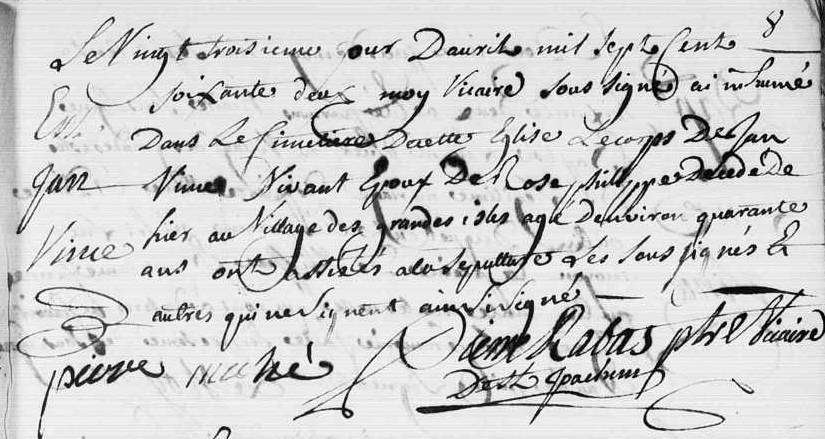 8
Le Vingt troisieme jour Dauril mil sept Cent
soixante deux moy Vicaire sous signé ai inhumé
Ent.
Dans Le Cimetiere Decette Eglise Lecorps De Jan
Jan
Vince Vivant Epoux De Rose philippe Decedé De
hier au Village des grandes isles agé Denviron quarante
Vince
ans ont assistés ala sepulture Les sous signés Et
autres qui ne signent ainsi signé
pierre Rabas ptre Vicaire
De st Joachim